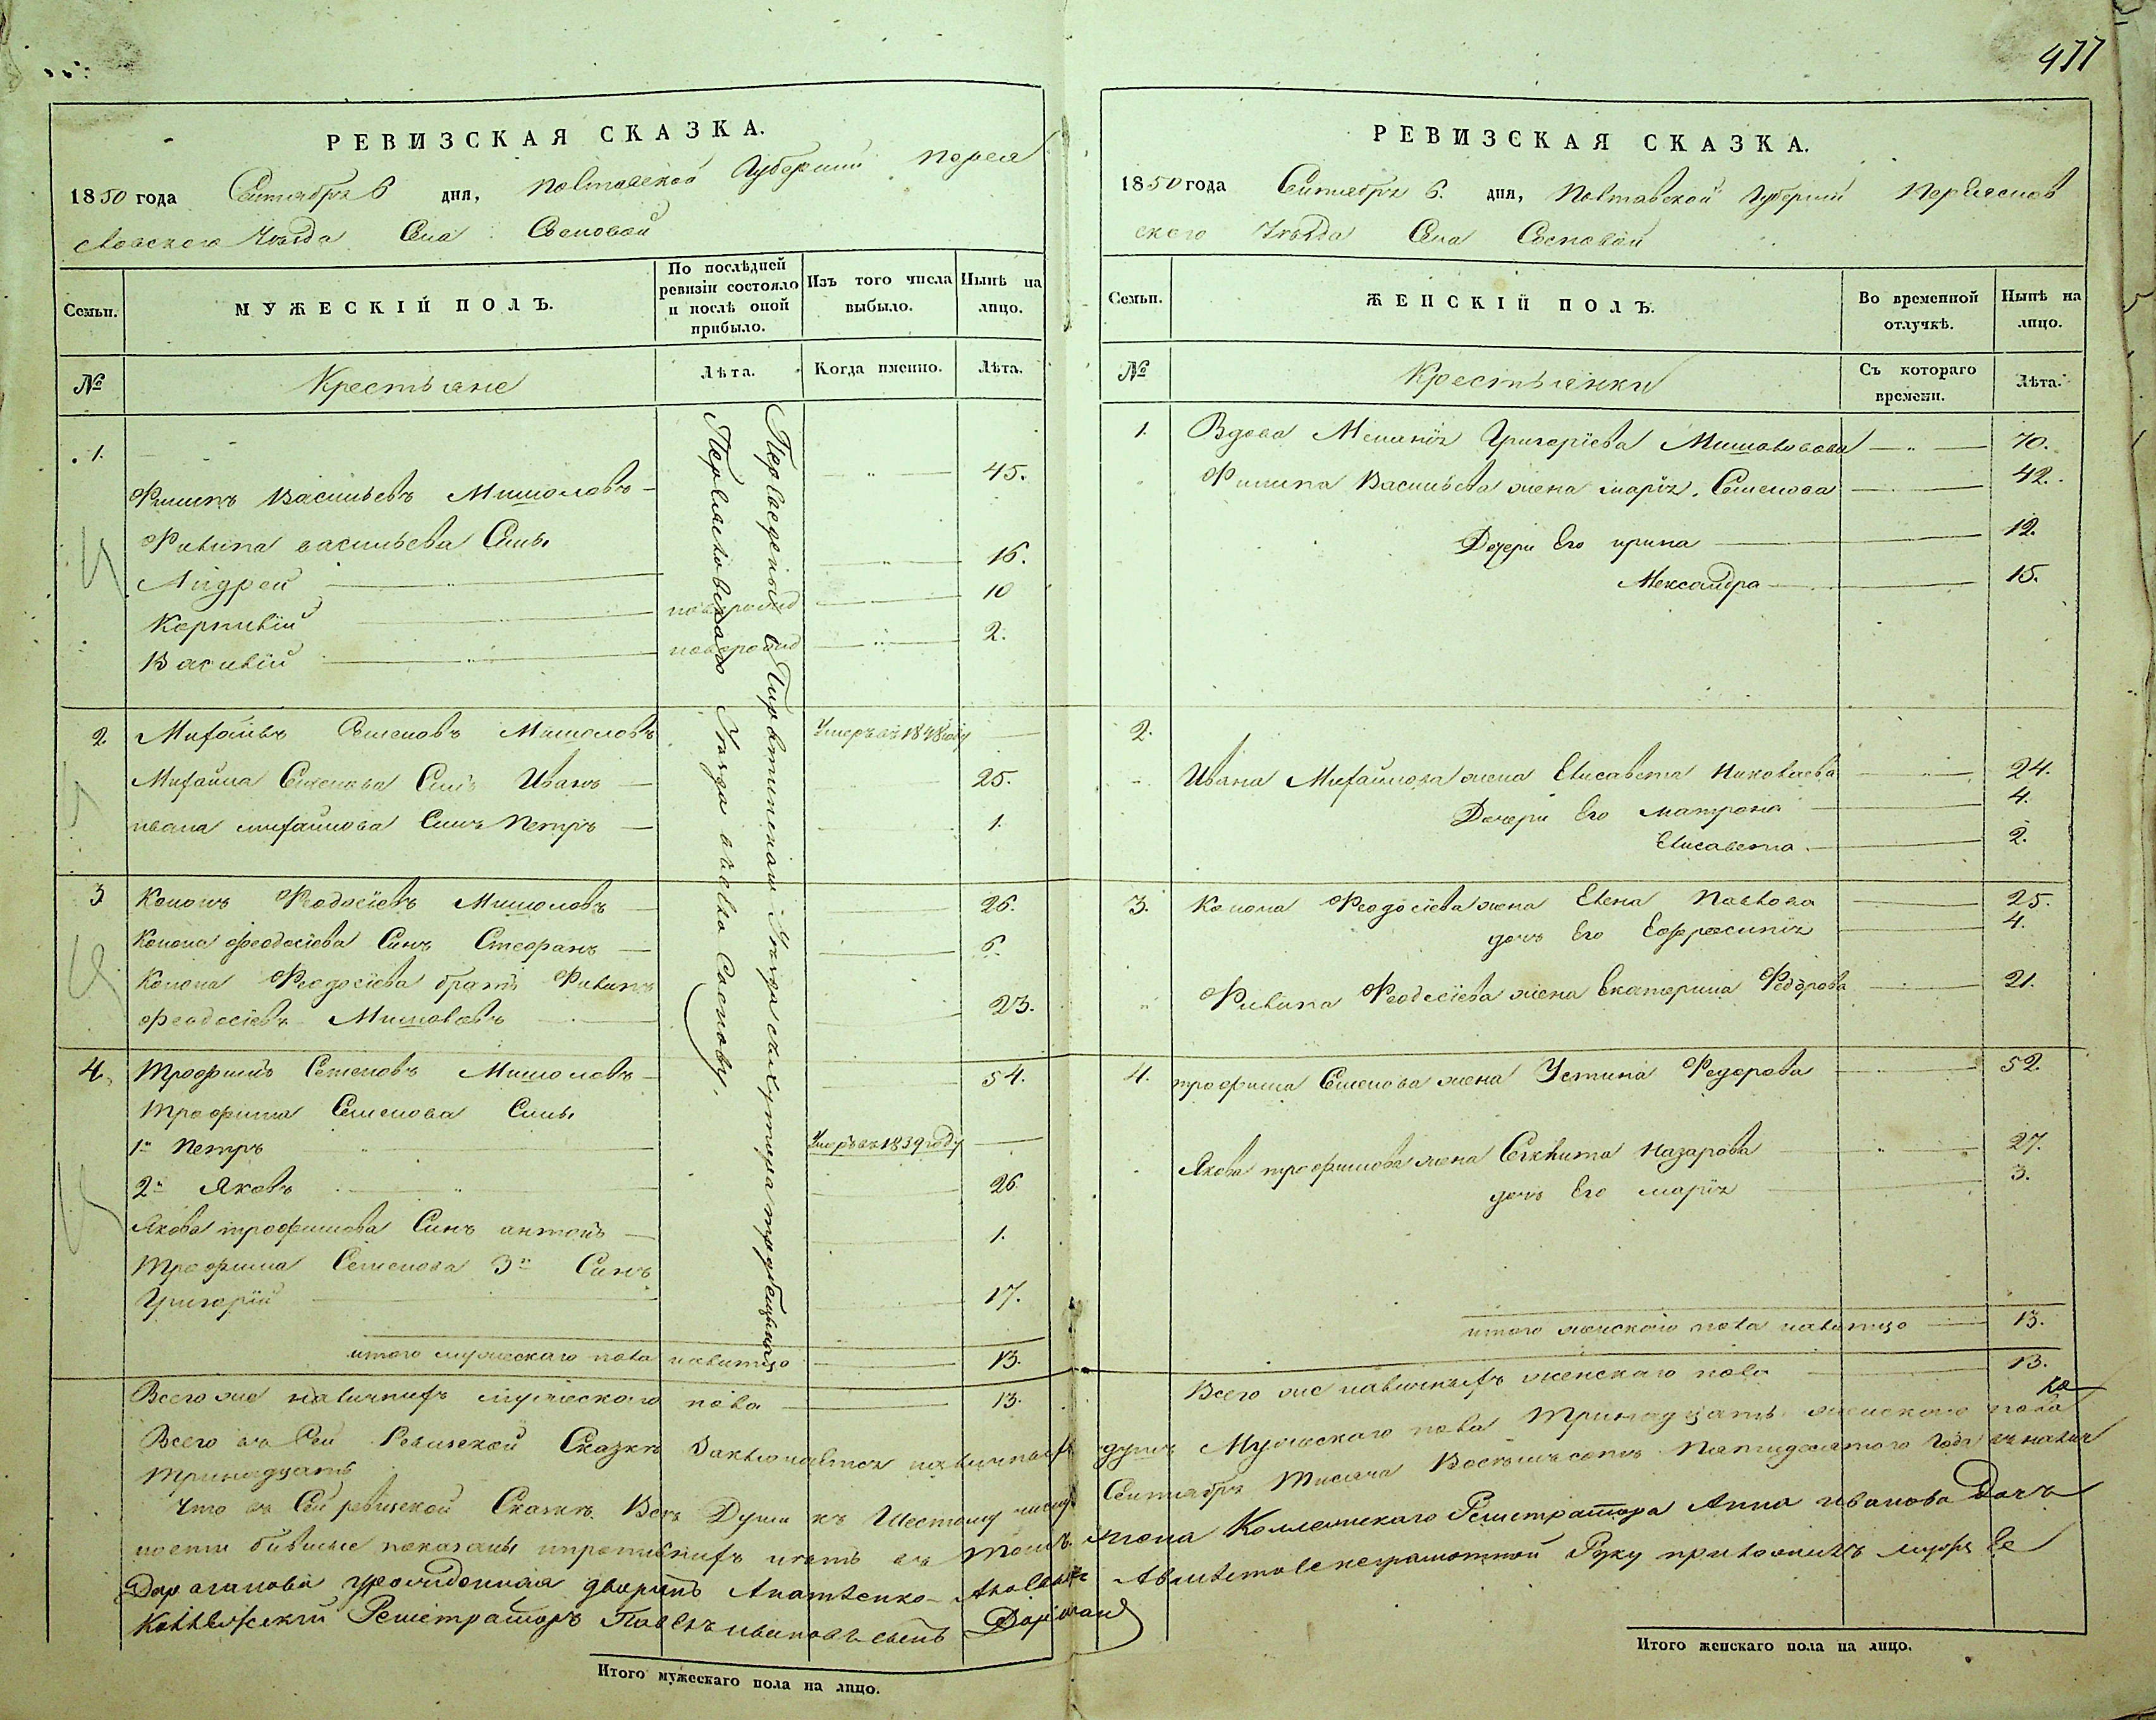 477
РЕВИЗСКАЯ СКАЗКА.
1850 года Сентября 6 дня, Полтавской Губернии Перея
словского Уезда Села Сосновой
Семьи.
МУЖЕСКІЙ ПОЛЪ.
По послѣдней ревизіи состояло и послѣ оной прибыло.
Изъ того числа выбыло.
Нынѣ на лицо.
№
Крестьяне
Лѣта.
Когда именно.
Лѣта.
1.
Филипъ Васильевъ 45.
Филипа васильева Сыны
Андрей 16.
Корнилій новорожд 10
Василій новорожд 2.
2 Михаилъ Семеновъ Умеръ въ 1848 году
Михаила Семенова Синъ Иванъ 25.
ивана михайлова Синъ Петръ 1.
3 Кононъ Феодосіевъ 26.
Конона феодосіева Синъ Стефанъ 6.
Конона Феодосіева братъ Филипъ
феодосіевъ 23.
4. Трофимъ Семеновъ 54.
Трофима Семенова Сыны
1й Петръ Умеръ въ 1839 году
2й Яковъ 26.
Якова трофимова Синъ антонъ 1.
Трофима Семенова 3й Синъ
Григорій 17.
Переяславскаго Уезда въ село Сосновку,
итого мужескаго пола налицо 13.
Всего же наличнихъ мужескаго пола 13.
РЕВИЗСКАЯ СКАЗКА.
1850 года Сентября 6. дня, Полтавской Губерніи Переяслов
ского Уезда Села Сосновой
Семьи.
ЖЕНСКІЙ ПОЛЪ.
Во временной отлучкѣ.
Нынѣ на лицо.
№
Крестьянки
Съ котораго времени.
Лѣта.
1. Вдова Меланія Григоріева 70.
Филипа Васильева жена марія Семенова 42.
Дочери Его ирина 12.
Александра 15.
2.
Ивана Михайлова жена Елисавета Николаева 24.
Дочери Его матрона 4.
Елисавета 2.
3. Конона Феодосіева жена Елена Павлова 25.
дочь Его Ефросинія 4.
Филипа Феодосіева жена Екатерина Федорова 21.
4. трофима Семенова жена Устина Федорова 52.
Якова трофимова жена Назарова 27.
дочь Его марія 3.
итого женскаго пола налицо 13.
Всего же наличныхъ женскаго пола 13.
Всего въ Сей Ревизской Сказке Заключается наличныхъ душъ Мужескаго пола Тринадцать женскаго пола
Тринадцать
Что въ Сей ревизской Сказке Все Души къ Шестому числу Сентября Тисяча Восемъсотъ Пятидесятого Года въ налич
ности бившие показаны Коллежскаго Регистратора Анна иванова Дочь
неграмотной Руку приложилъ мужъ Ее
Регистраторъ Павелъ ивановъ сынъ
Итого мужескаго пола на лицо.
Итого женскаго пола на лицо.